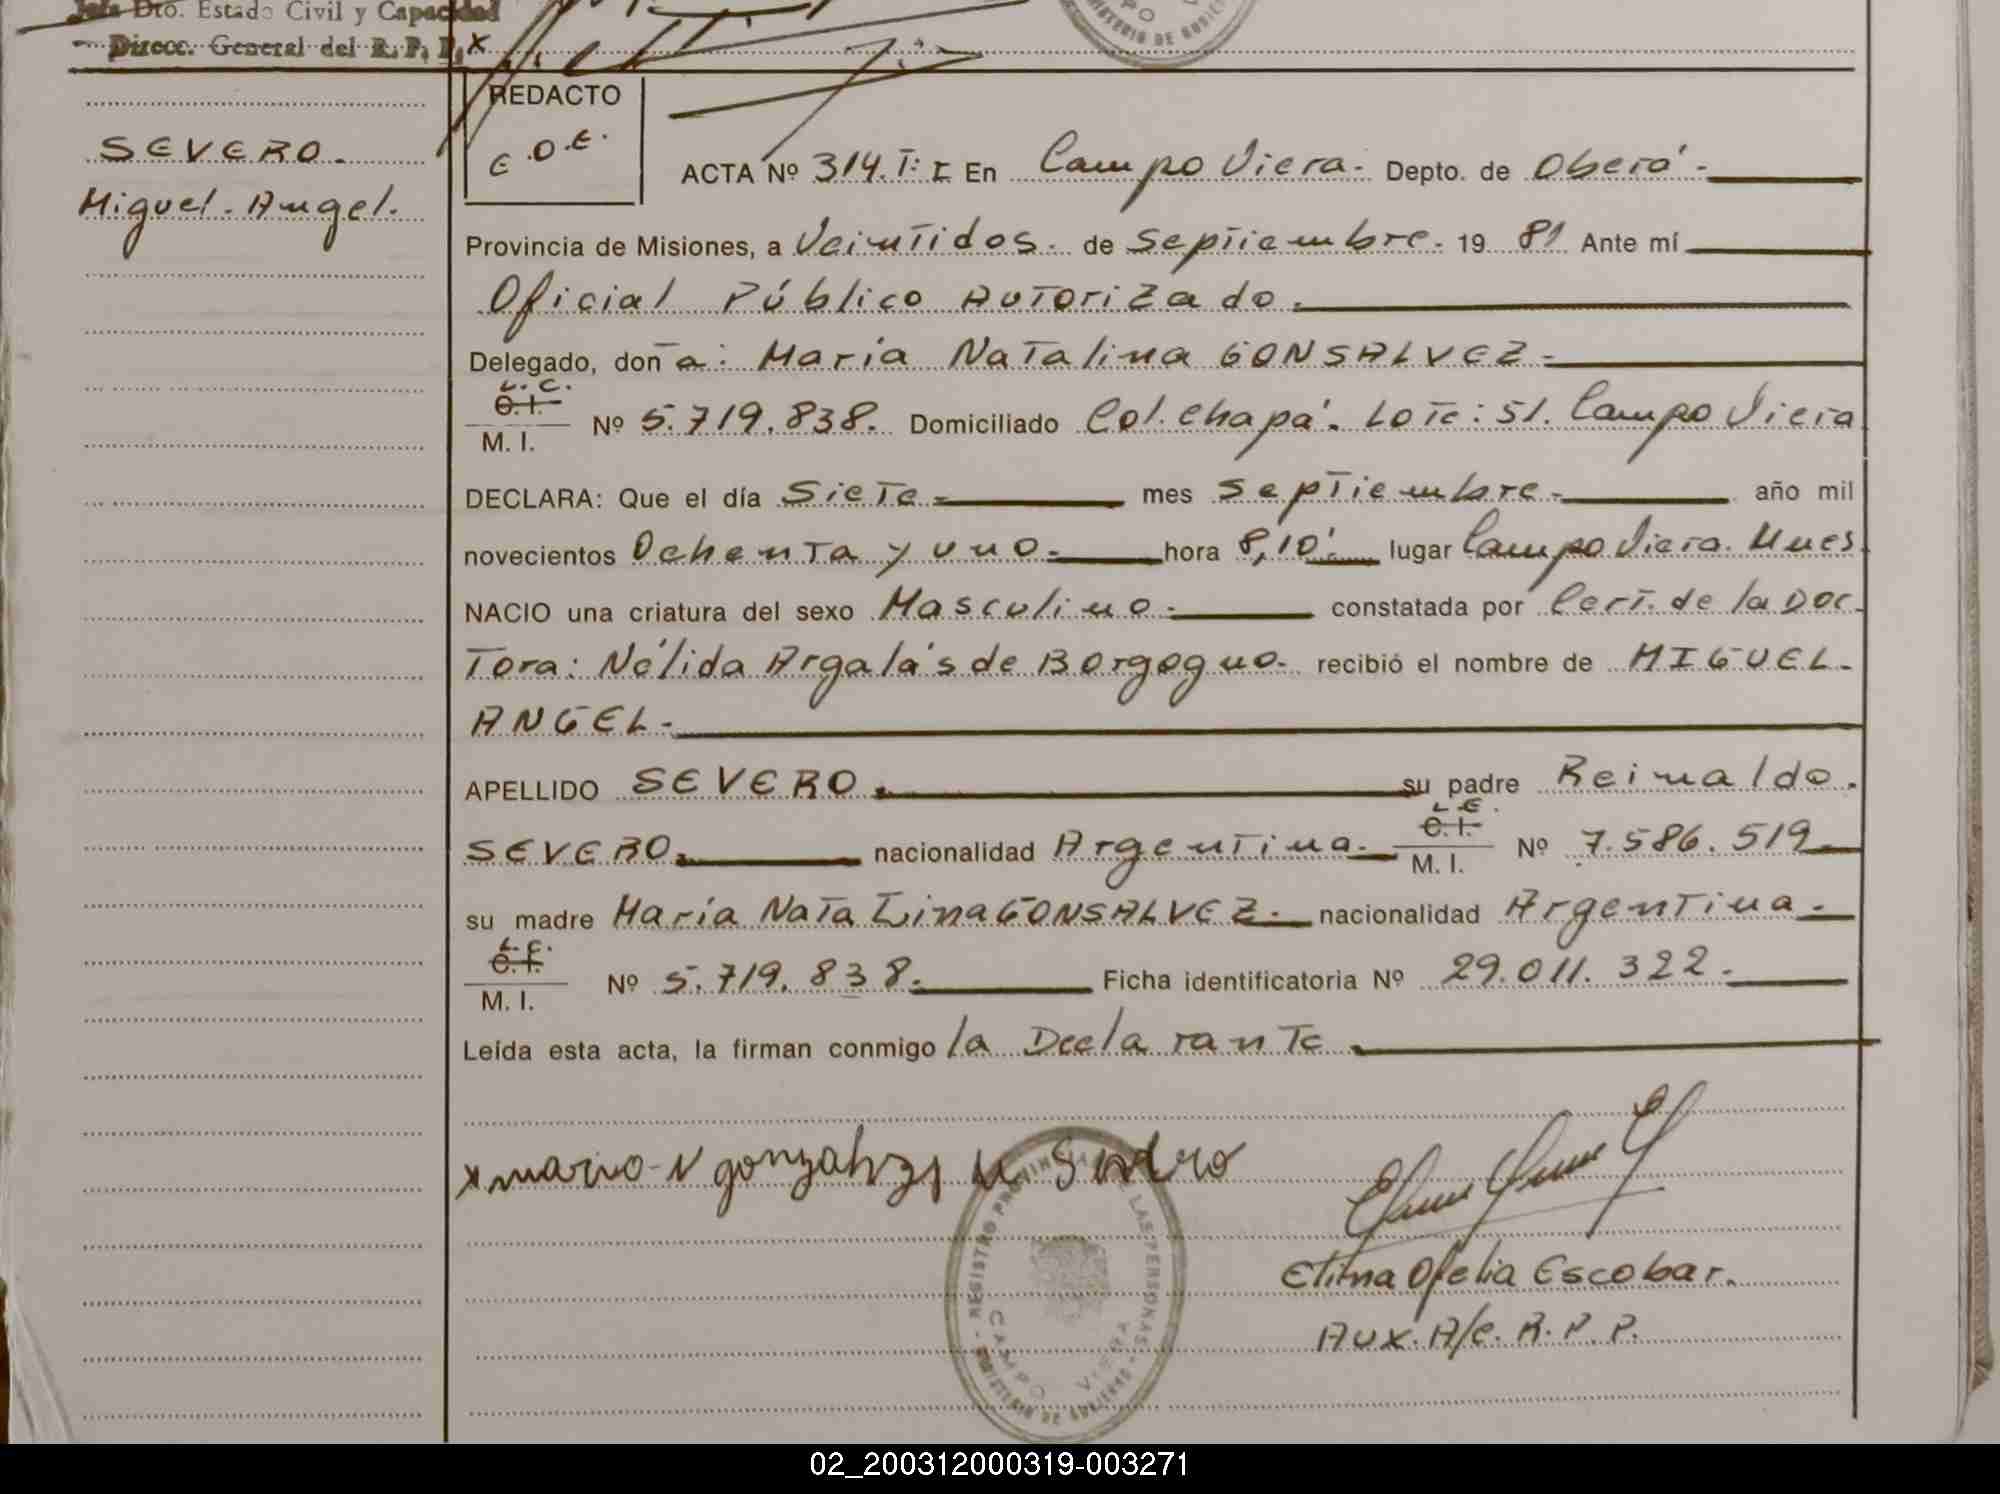 Jefa Dto. Estado Civil y Capacidad
Direcc. General del R. P. P. x
SEVERO.
Miguel. Angel.
REDACTO
E.O.E.
ACTA Nº 314. T: I En Campo Viera. Depto. de Oberá.
Provincia de Misiones, a Veintidos. de Septiembre. 19 81 Ante mí
Oficial Público Autorizado.
Delegado, don a: María Natalina GONSALVEZ.
L. C.
C. I.
M. I.
Nº 5.719.838. Domiciliado Col. Chapá. Lote: 51. Campo Viera
DECLARA: Que el día Siete. mes Septiembre. año mil
novecientos Ochenta y uno. hora 8,10'. lugar Campo Viera. Mnes.
NACIO una criatura del sexo Masculino. constatada por Cert. de la Doc-
tora: Nélida Argalás de Borgogno. recibió el nombre de MIGUEL.
ANGEL.
APELLIDO SEVERO. su padre Reinaldo.
SEVERO. nacionalidad Argentina.
L. E.
C. I.
M. I.
Nº 7.586.519
su madre María Natalina GONSALVEZ. nacionalidad Argentina.
L. C.
C. I.
M. I.
Nº 5.719.838. Ficha identificatoria Nº 29.011.322.
Leída esta acta, la firman conmigo la Declarante
REGISTRO PROVINCIAL DE LAS PERSONAS
CAMPO VIERA
MINISTERIO DE GOBIERNO
Elima Ofelia Escobar.
Aux. A/C. R. P. P.
02_200312000319-003271